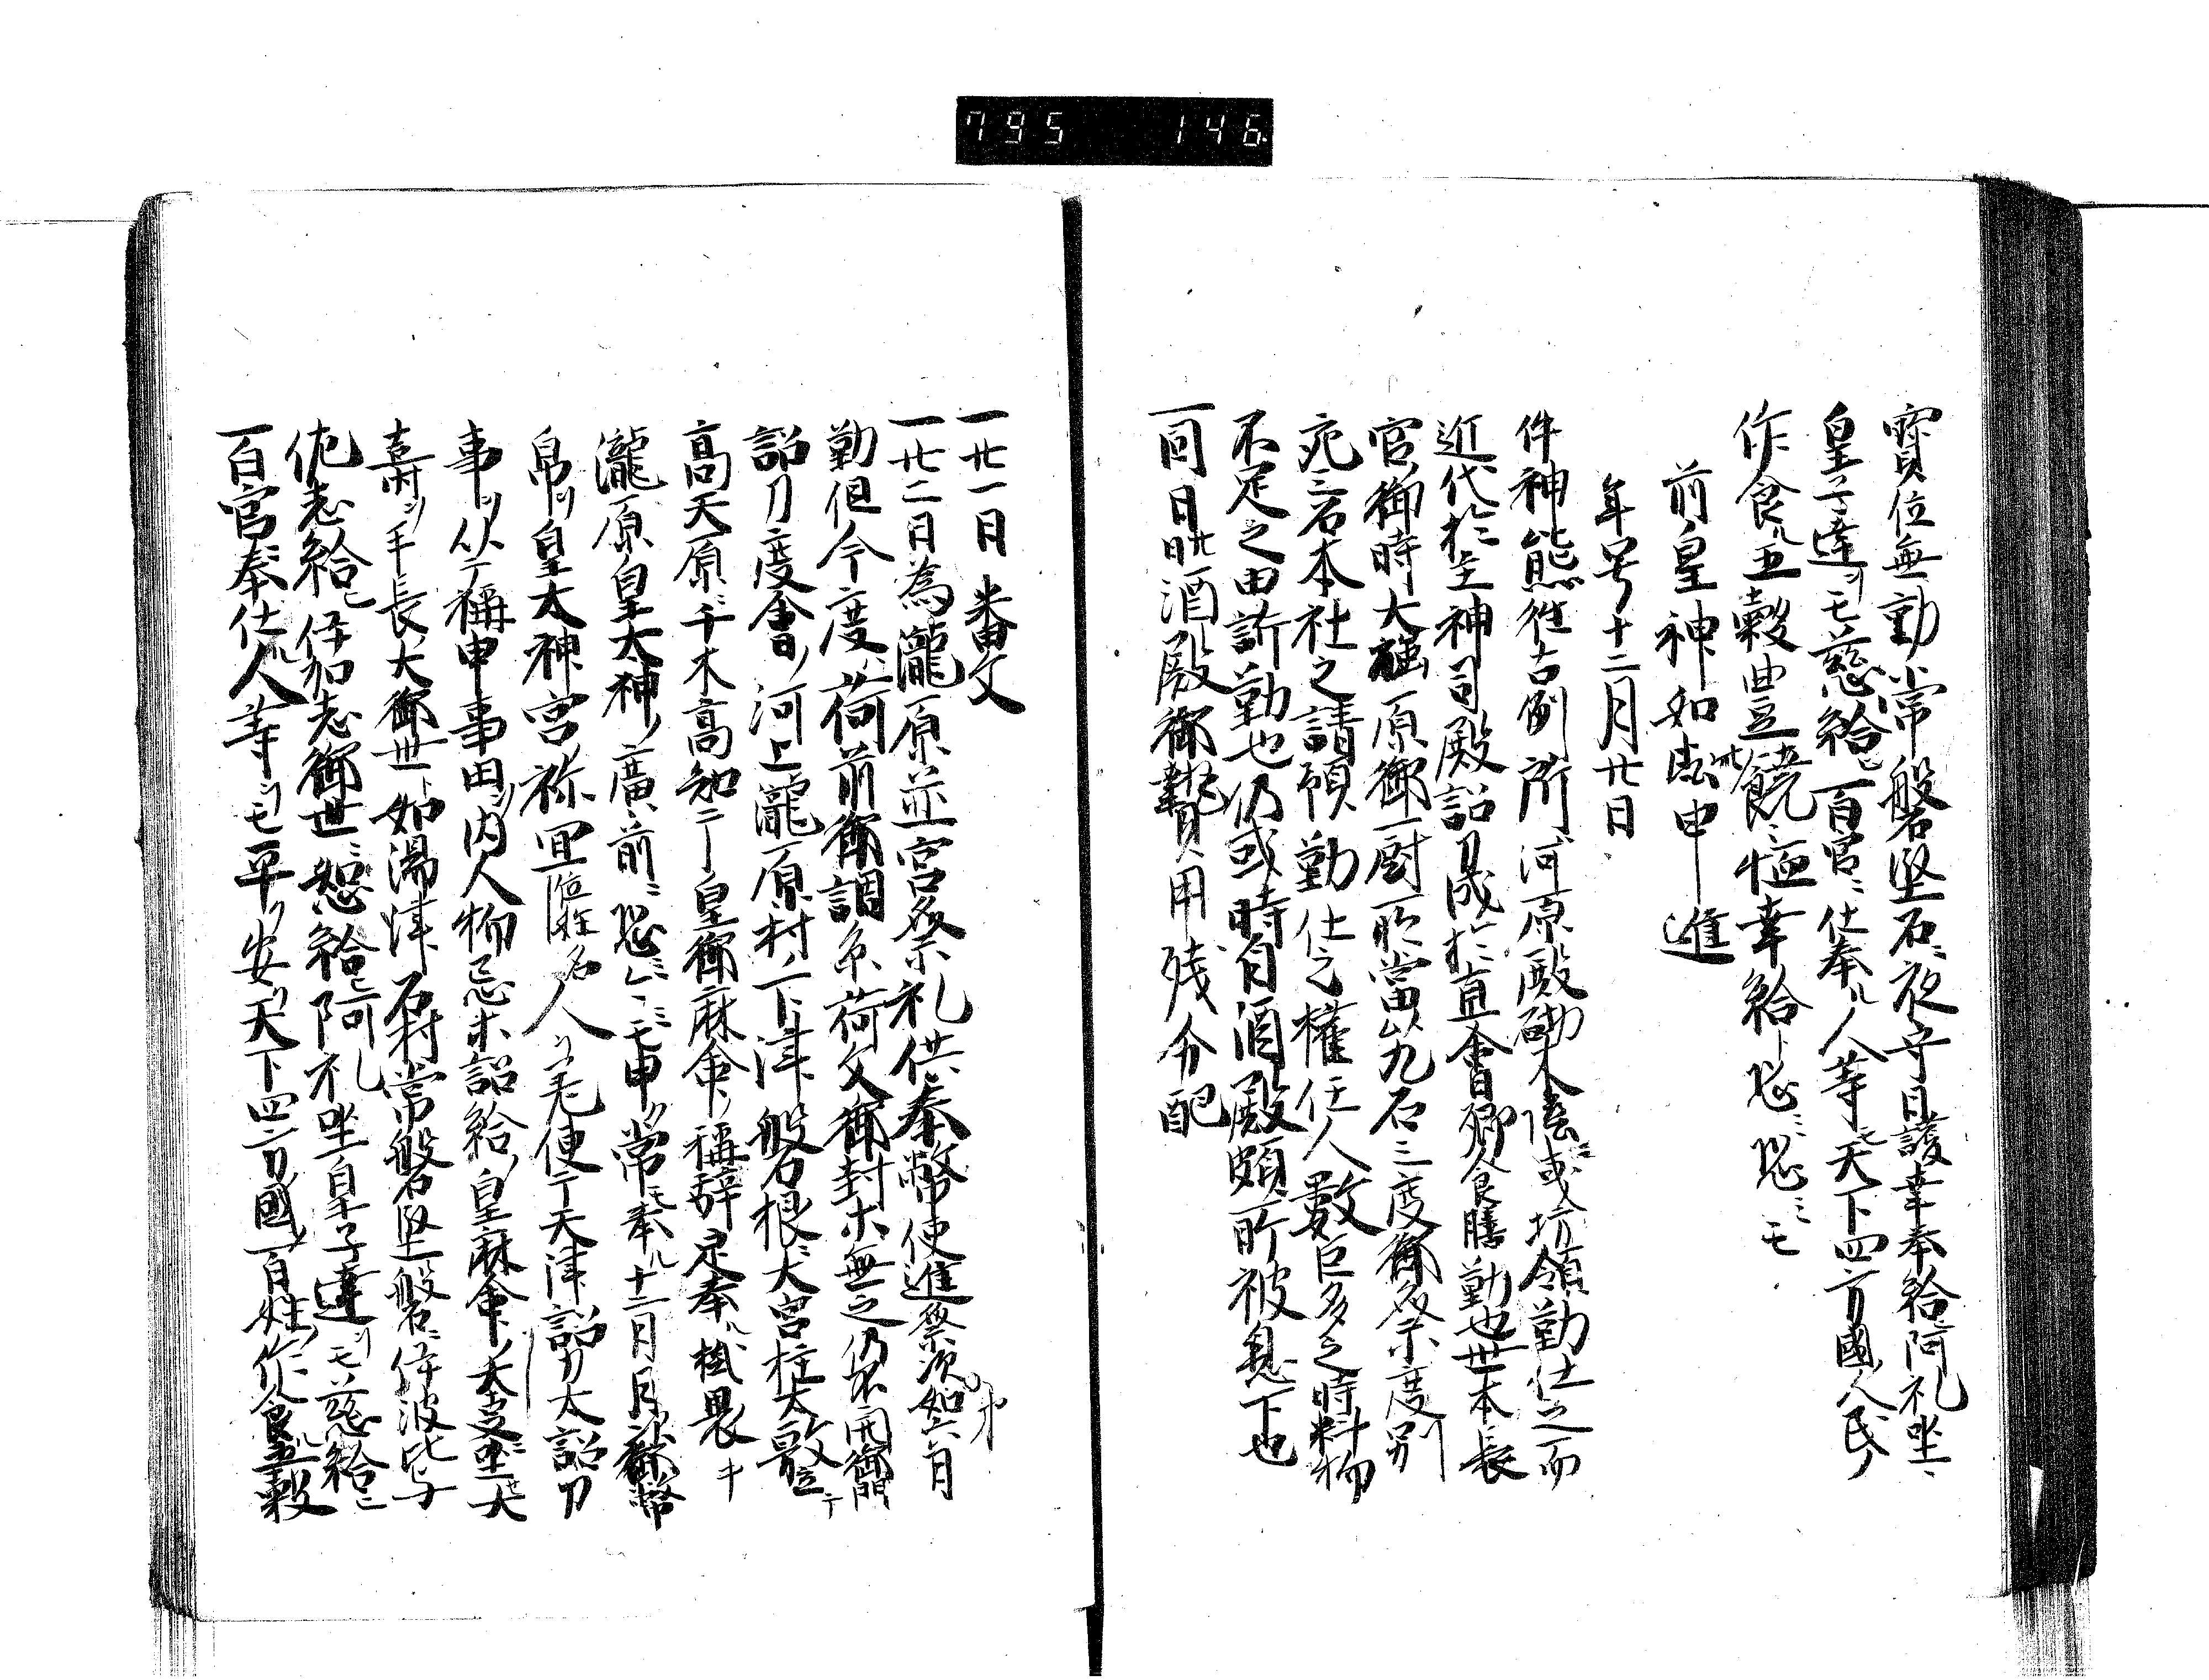 795 146
寳位無動常磐堅石ニ夜守日護幸奉給阿礼坐
皇子達ヲモ慈給ヒ百官ニ仕奉ル人等モ天下四方國ノ人民ノ
作食ル五穀豊饒ニ恤幸給ト恐ミ恐ミモ
前皇神如此申進
年号十二月廿日
件神態往古例所河原殿砌木陰ニ或坊領勤仕之而
近代於主神司殿詔刀成於直會卿食膳勤也世本長
官御時大强原御厨所當以九石三度御祭度別
宛之若本社之請預勤仕之權任人數巨多之時料物
不足之由訴勤也仍或時自酒殿頗所被息下也
一同日此日酒殿御贄用残分配
一廿一日番文
一廿二日為瀧原並宮祭礼供奉幣使進發次如六月
勤但今度荷前御調糸荷文御封木無之仍不開御門
詔刀度會ノ河上瀧原村ノ下津磐根大宮柱太敷立テ
高天原ニ千木高知テ皇御麻命ノ稱辞定奉ル掛畏キ
瀧原皇大神ノ廣前ニ恐ミ恐ミモ申ク常モ奉ル十二月月次御幣
帛ヲ皇太神宮祢宜位姓名人ヲ差使テ天津詔刀太詔刀
事ヲ以テ稱申事由ヲ内人物忌木詔給皇麻命大
壽ヲ手長大御世ト如湯津石村常磐堅磐ニ伊波比与
佐志給ヒ伊加志御世ニ恕給ヒ阿礼坐皇子達ヲモ慈給ヒ
百官奉仕ル人等ヲモ平ク安ク天下四方國百姓ノ作食ル五穀